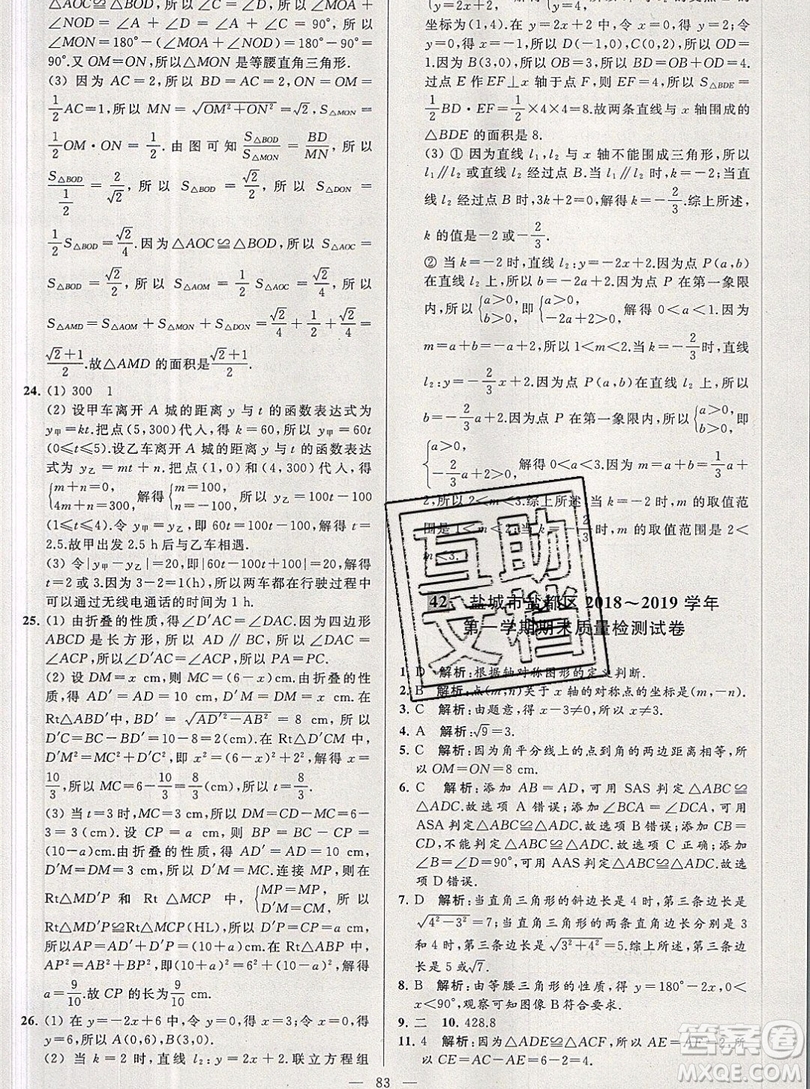 △AOC≌△BOD，所以∠MOA=∠BOD，所以∠MOA+
∠NOM=180°-(∠MOA+∠BON)=180°-90°=
90°.又 OM=ON，所以△MON 是等腰直角三角形.
(3) 因为 AC=2，所以 BD=AC=2，所以 ON=
1/2 AC=1，所以 MN=√(OM²+ON²)=√2，所以 S△MON=
1/2 OM·ON=1/2. 由图可知 S△BOD/S△MON=BD/MN，所以
S△BOD/(1/2)=2/√2，所以 S△BOD=√2/2，所以 S△DON=
1/2 S△BOD=√2/4.因为△AOC≌△BOD，所以 S△AOC=
S△BOD，所以 S△AOM=1/2 S△BOD=√2/4，所以
S△AMD=S△AOM+S△MON+S△DON=√2/4+1/2+√2/4=
(√2+1)/2.故△AMD 的面积是(√2+1)/2.
24. (1) 300 1
(2) 设甲车离开 A 城的距离 y 与 t 的函数表达式为
y甲=kt.把点(5,300)代入，得 k=60，所以 y甲=60t
(0≤t≤5).设乙车离开 A 城的距离 y 与 t 的函数表达
式为 y乙=mt+n.把点(1,0)和点(4,300)代入，得
{m+n=0, 4m+n=300, 解得{m=100, n=-100, 所以 y乙=100t-100
(1≤t≤4).令 y甲=y乙，即 60t=100t-100，解得 t=
2.5.故甲出发 2.5 h 后与乙车相遇.
(3) 令|y甲-y乙|=20，即|60t-100t+100|=20，解得
t=2 或 t=3.因为 3-2=1，所以两车都在行驶过程中
可以通过无线电通话的时间为 1 h.
25. (1) 由折叠的性质，得 AD'=AD.因为四边形
ABCD 是长方形，所以 AD=BC=10 cm，所以 AD'=
10 cm.
(2) 设 MC=x cm，则 MD=(6-x)cm.由折叠的性
质，得 D'M=DM=(6-x)cm，AD'=AD=10 cm.在
Rt△ABD'中，BD'=√(AD'²-AB²)=8 cm，所以
D'C=BC-BD'=2 cm.在 Rt△CMD'中，MC²+
D'C²=D'M²，即 x²+2²=(6-x)²，解得 x=8/3.因为6-8/3=
10/3，所以 MC=8/3
(3) 当 t=3 时，MC=3 cm，所以 DM=CD-MC=6-
3=3(cm).设 CP=a cm，则 BP=BC-CP=(10-
a)cm.由折叠的性质，得 AD'=AD=10 cm，
D'M=DM=3 cm，所以 D'M=MC.连接 MP，在
Rt△MD'P 和 Rt△MCP 中，{MP=MP, D'M=CM, 所以
Rt△MD'P≌Rt△MCP(HL)，所以 D'P=CP=a cm，
所以AP=AD'-D'P=(10-a)cm.在 Rt△ABP 中，
AP²=AB²+BP²，即(10-a)²=6²+(10-a)²，解得
a=9/10.故 CP 的长为9/10 cm.
26. (1) 在 y=-2x+6 中，令 y=0，得 x=3；令 x=0，得
y=6，所以 A(0,6)，B(3,0).
(2) 当 k=-2 时，直线 l₂:y=-2x+2.联立方程组
坐标为(1,4).在 y=2x+2 中，令 x=0，得 y=2；令 y=
0，得 x=-1，所以 D(-1,0)，C(0,2)，所以 OD=
1.因为 B(3,0)，所以 OB=3，所以 BD=OB+OD=4.
过点 E 作 EF⊥x 轴于点 F，则 EF=4，所以 S△BDE=
1/2 BD·EF=1/2×4×4=8.故两条直线与 x 轴围成的
△BDE 的面积是 8.
(3) ① 因为直线 l₁，l₂ 与 x 轴不能围成三角形，所以
l₁∥l₂ 或直线 l₂ 经过点 B.当 l₁∥l₂ 时，k=-2；当直线
l₂ 经过点 B 时，3k+2=0，解得 k=-2/3.综上所述，
k 的值是-2 或-2/3.
② 当 k=-2 时，直线 l₂:y=-2x+2.因为点 P(a,b)
在直线 l₂ 上，所以 b=-2a+2.因为点 P 在第一象限
内，所以{a>0, b>0, 即{a>0, -2a+2>0, 解得 0<a<1.因为
m=a+b=2-a，所以 1<m<2.当 k=-2/3 时，直线
l₂:y=-2/3x+2.因为点 P(a,b)在直线 l₂ 上，所以 b=
-2/3a+2.因为点 P 在第一象限内，所以{a>0, b>0, 即
{a>0, -2/3a+2>0, 解得 0<a<3.因为 m=a+b=1/3a+
2，所以 2<m<3.综上所述，当 k=-2 时，m 的取值范
围是 1<m<2；当 k=-2/3 时，m 的取值范围是 2<
m<3.
42. 盐城市盐都区 2018～2019 学年
第一学期期末质量检测试卷
1. D 解析：根据轴对称图形的定义判断.
2. B 解析：点(m,n)关于 x 轴的对称点的坐标是(m,-n).
3. C 解析：由题意，得 x-3≠0，所以 x≠3.
4. A 解析：√9=3.
5. C 解析：因为角平分线上的点到角的两边距离相等，
所以 OM=ON=8 cm.
6. C 解析：添加 AB=AD，可运用 SAS 判定△ABC≌
△ADC.故选项 A 错误；添加∠ACB=∠ACD，可运用
ASA判定△ABC≌△ADC.故选项 B 错误；添加 CB=
CD，不能判定△ABC≌△ADC.故选项 C 正确；添加
∠B=∠D=90°，可运用 AAS 判定△ABC≌△ADC.故
选项 D 错误.
7. D 解析：当直角三角形的斜边长是 4 时，第三条边长是
√(4²-3²)=√7；当直角三角形的两条直角边长分别是 3 和
4 时，第三条边长是√(3²+4²)=5.综上所述，第三条边长
是 5 或√7.
8. B 解析：由等腰三角形的性质，得 y=180°-2x，0<
x<90°，观察可知图像 B 符合要求.
9. 二 10. 428.8
11. 4 解析：因为△ADE≌△ACF，所以 AE=AF=2，所
以 CE=AC-AE=6-2=4.
— 83 —
互助文档
答案圈
MXQE.COM